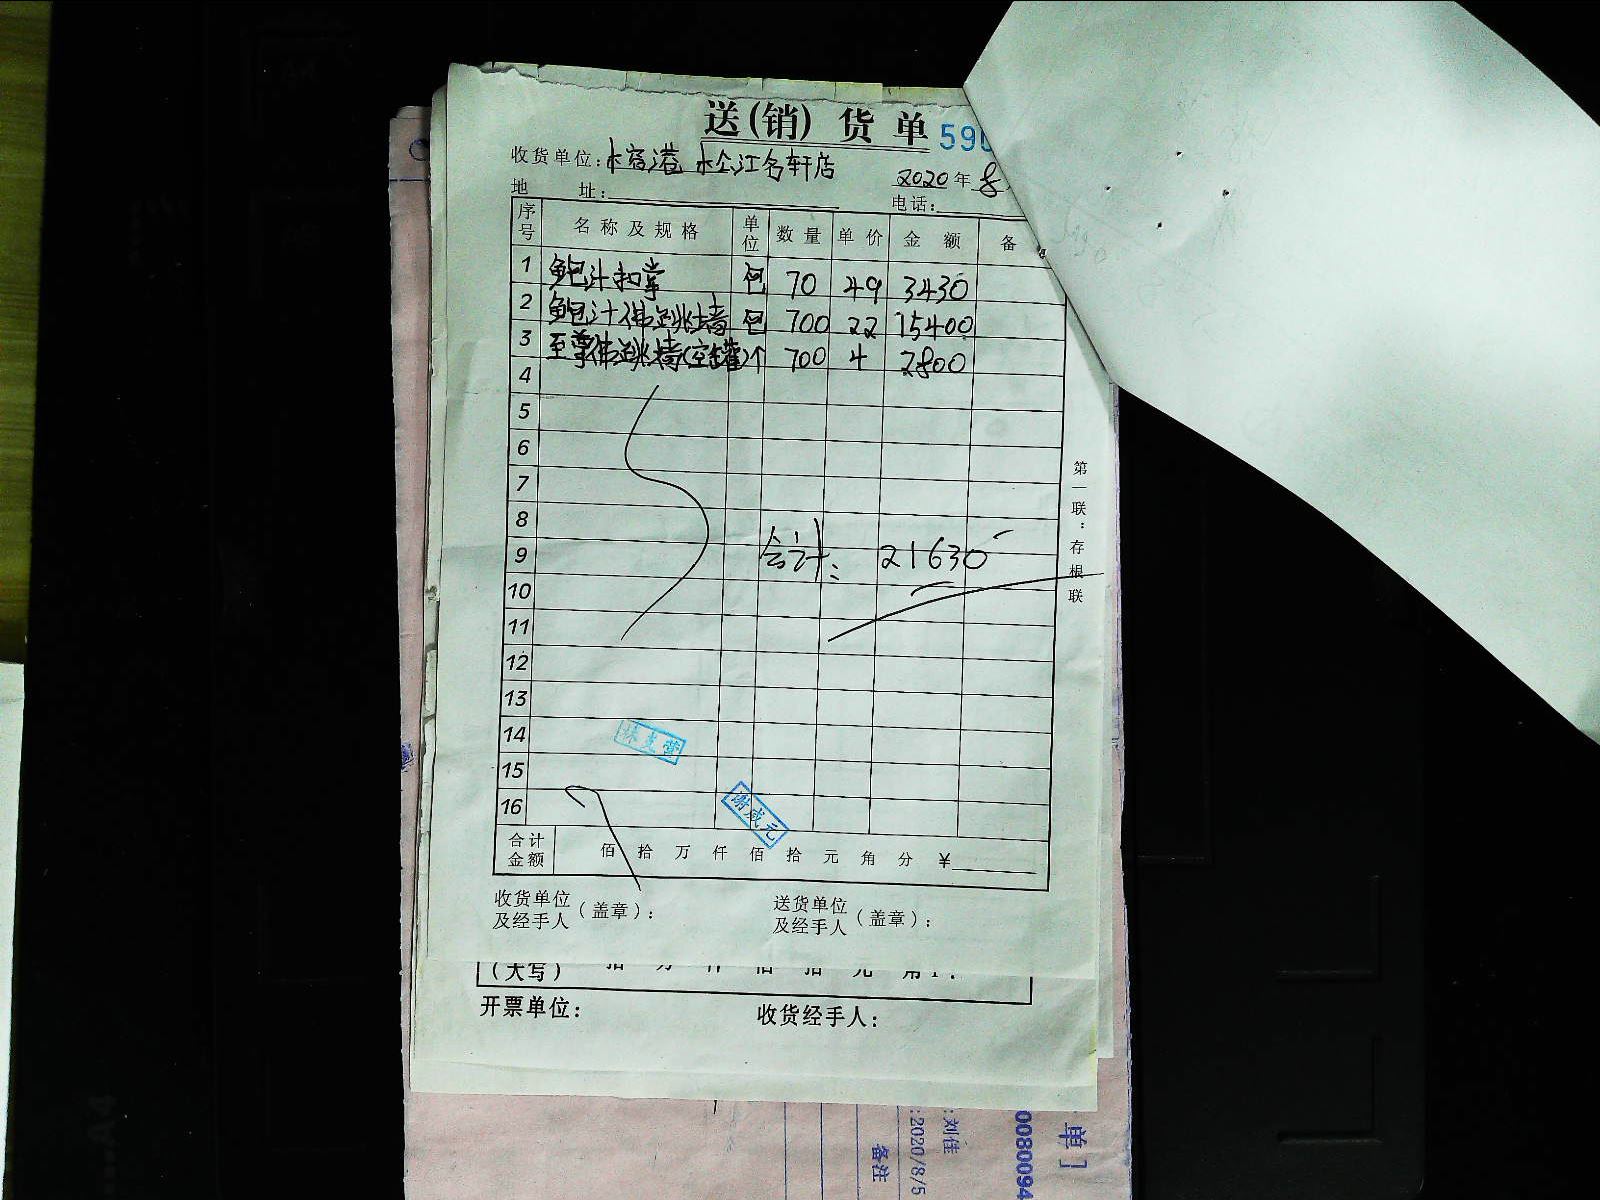 送(销)货单 590
收货单位: 江名轩店
2020年8
地 址:
电话:
序号 名称及规格 单位 数量 单价 金额 备
1 鲍汁扣掌 包 70 49 3430
2 鲍汁佛跳墙 包 700 22 15400
3 至尊佛跳墙(空罐) 个 700 4 2800
4
5
6
7
8
9 合计: 21630
10
11
12
13
14
15
16
谢咸元
合计金额 佰 拾 万 仟 佰 拾 元 角 分 ¥
收货单位及经手人(盖章):
送货单位及经手人(盖章):
第一联:存根联
(大写) 拾 万 仟 佰 拾 元 角
开票单位:
收货经手人:
单]
0080094
:刘佳
:2020/8/5
备注